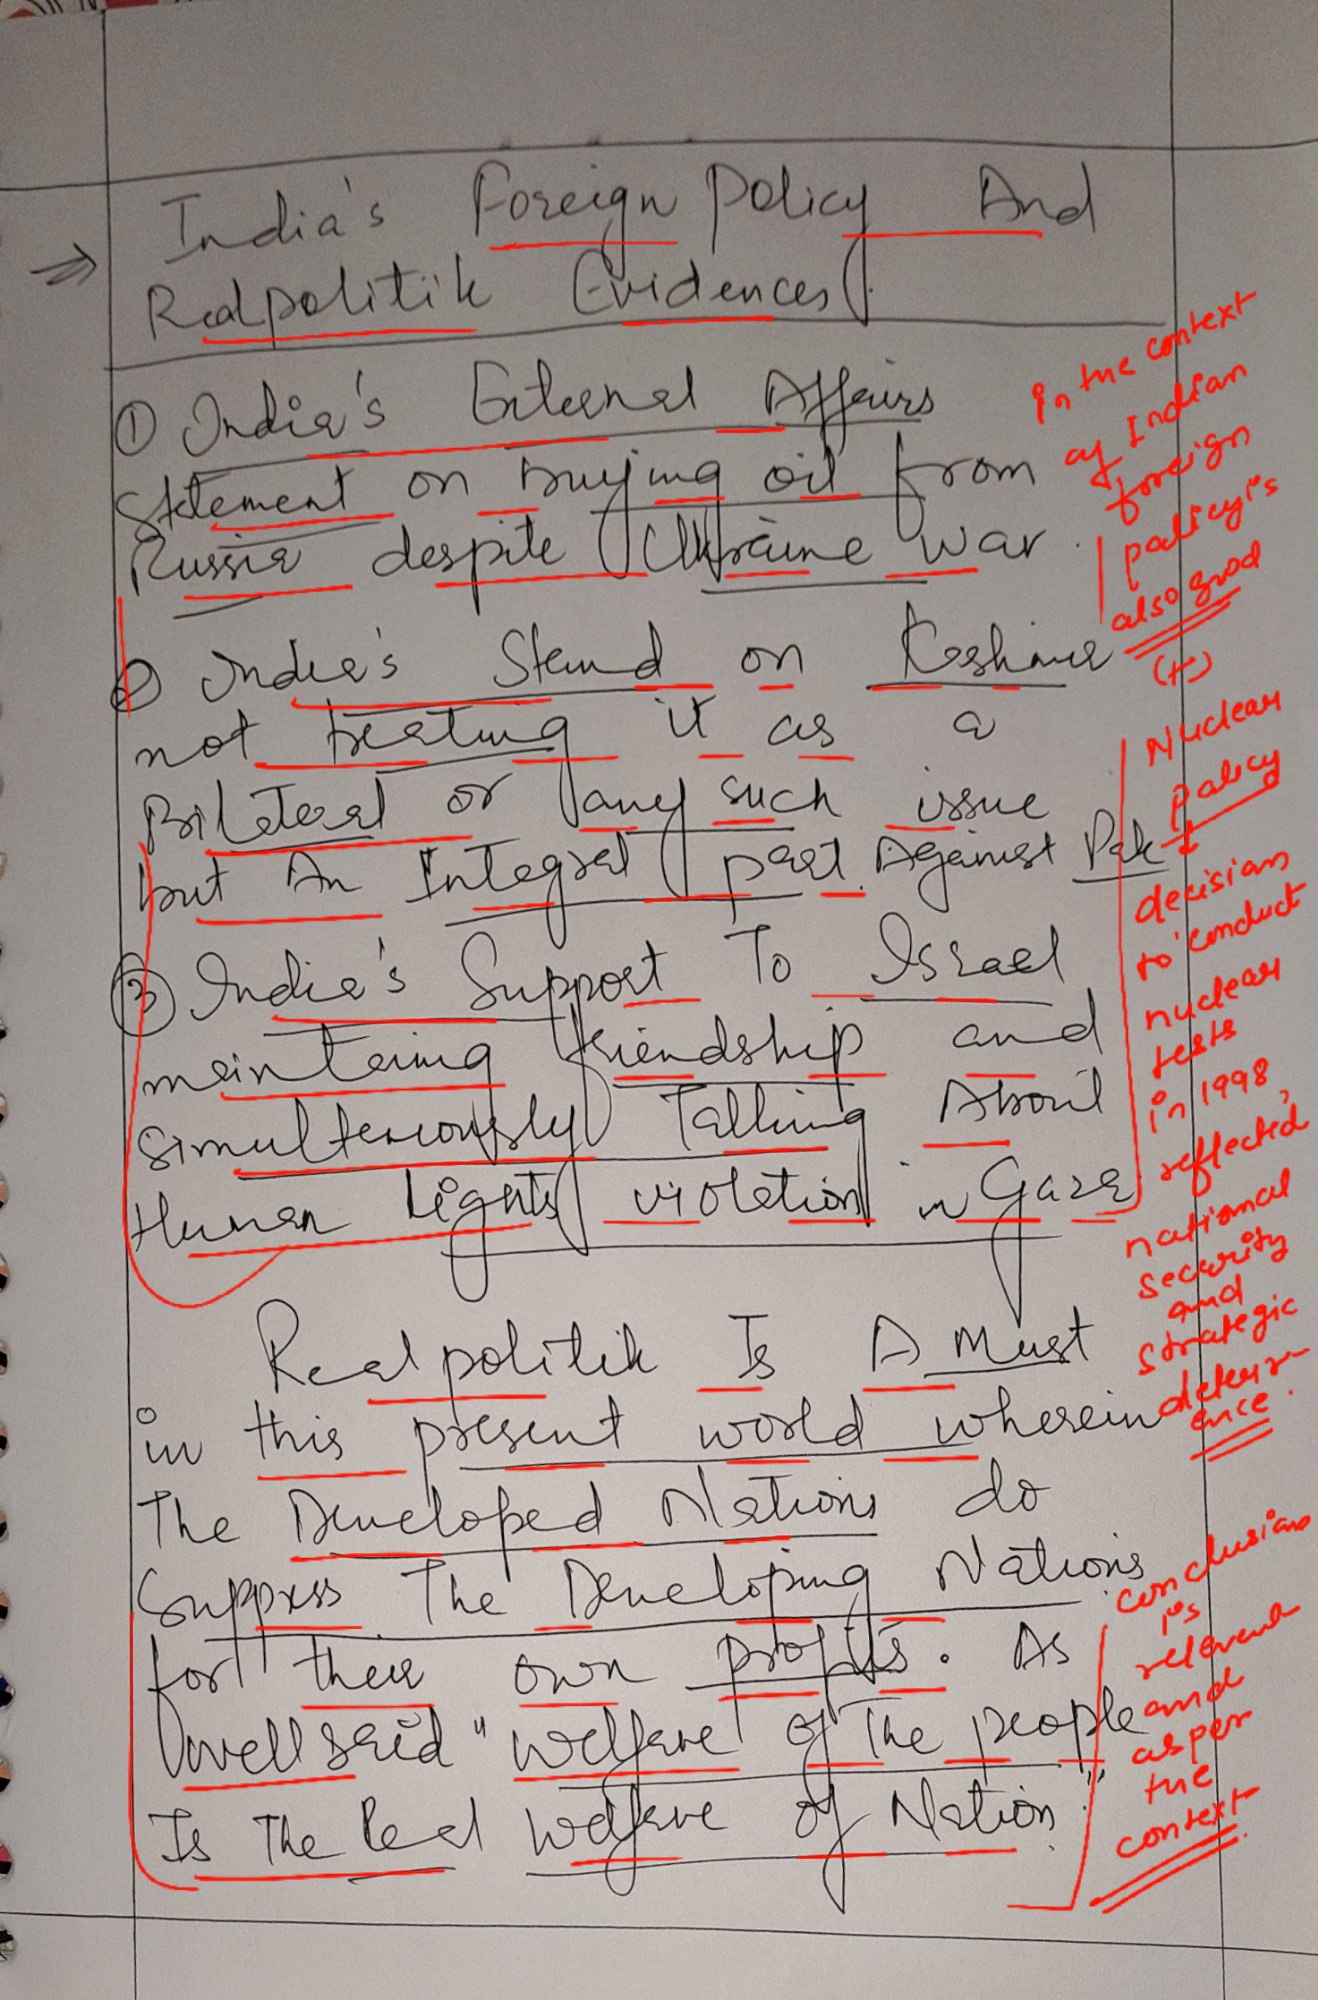 India's Foreign Policy And
Realpolitik Evidences.
① India's External Affairs
Statement on buying oil from
Russia despite Ukraine war.
② India's Stand on Kashmir
not treating it as a
Bilateral or any such issue
but An Integral part. Against Pak
③ India's Support To Israel
maintaing friendship and
simultaneously Talking About
Human Rights violation in Gaza
Realpolitik Is A Must
in this present world wherein
The Developed Nations do
Suppress The Developing Nations
for their own profits. As
well said "welfare of The people
Is The Real Welfare of Nation."
in the context
of Indian
foreign
policy is
also good
(+)
Nuclear
policy
decision
to conduct
nuclear
tests
in 1998,
reflected
national
security
and
strategic
deterr-
ence.
conclusion
is
relevant
and
as per
the
context.